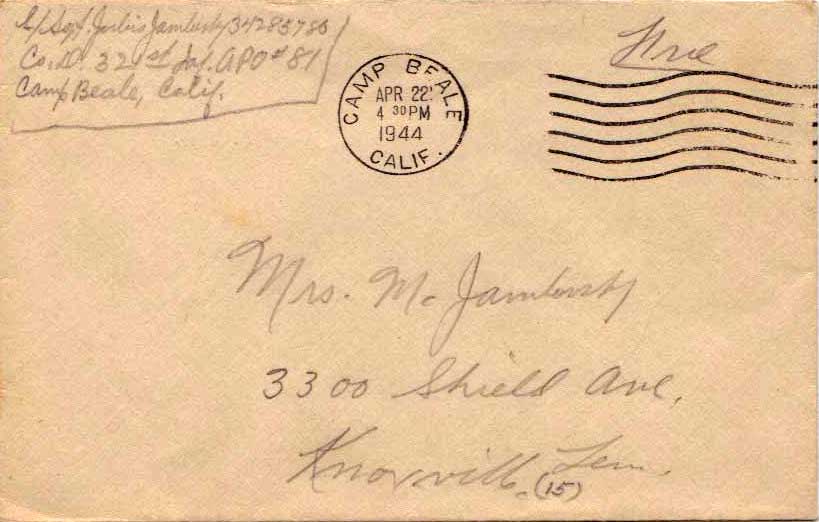 34285786
Co. D. 321st Inf. APO #81
Camp Beale, Calif.
Free
CAMP BEALE
APR 22
4 30 PM
1944
CALIF.
Mrs. M.
3300 Shield Ave.
Knoxville, Tenn.
(15)